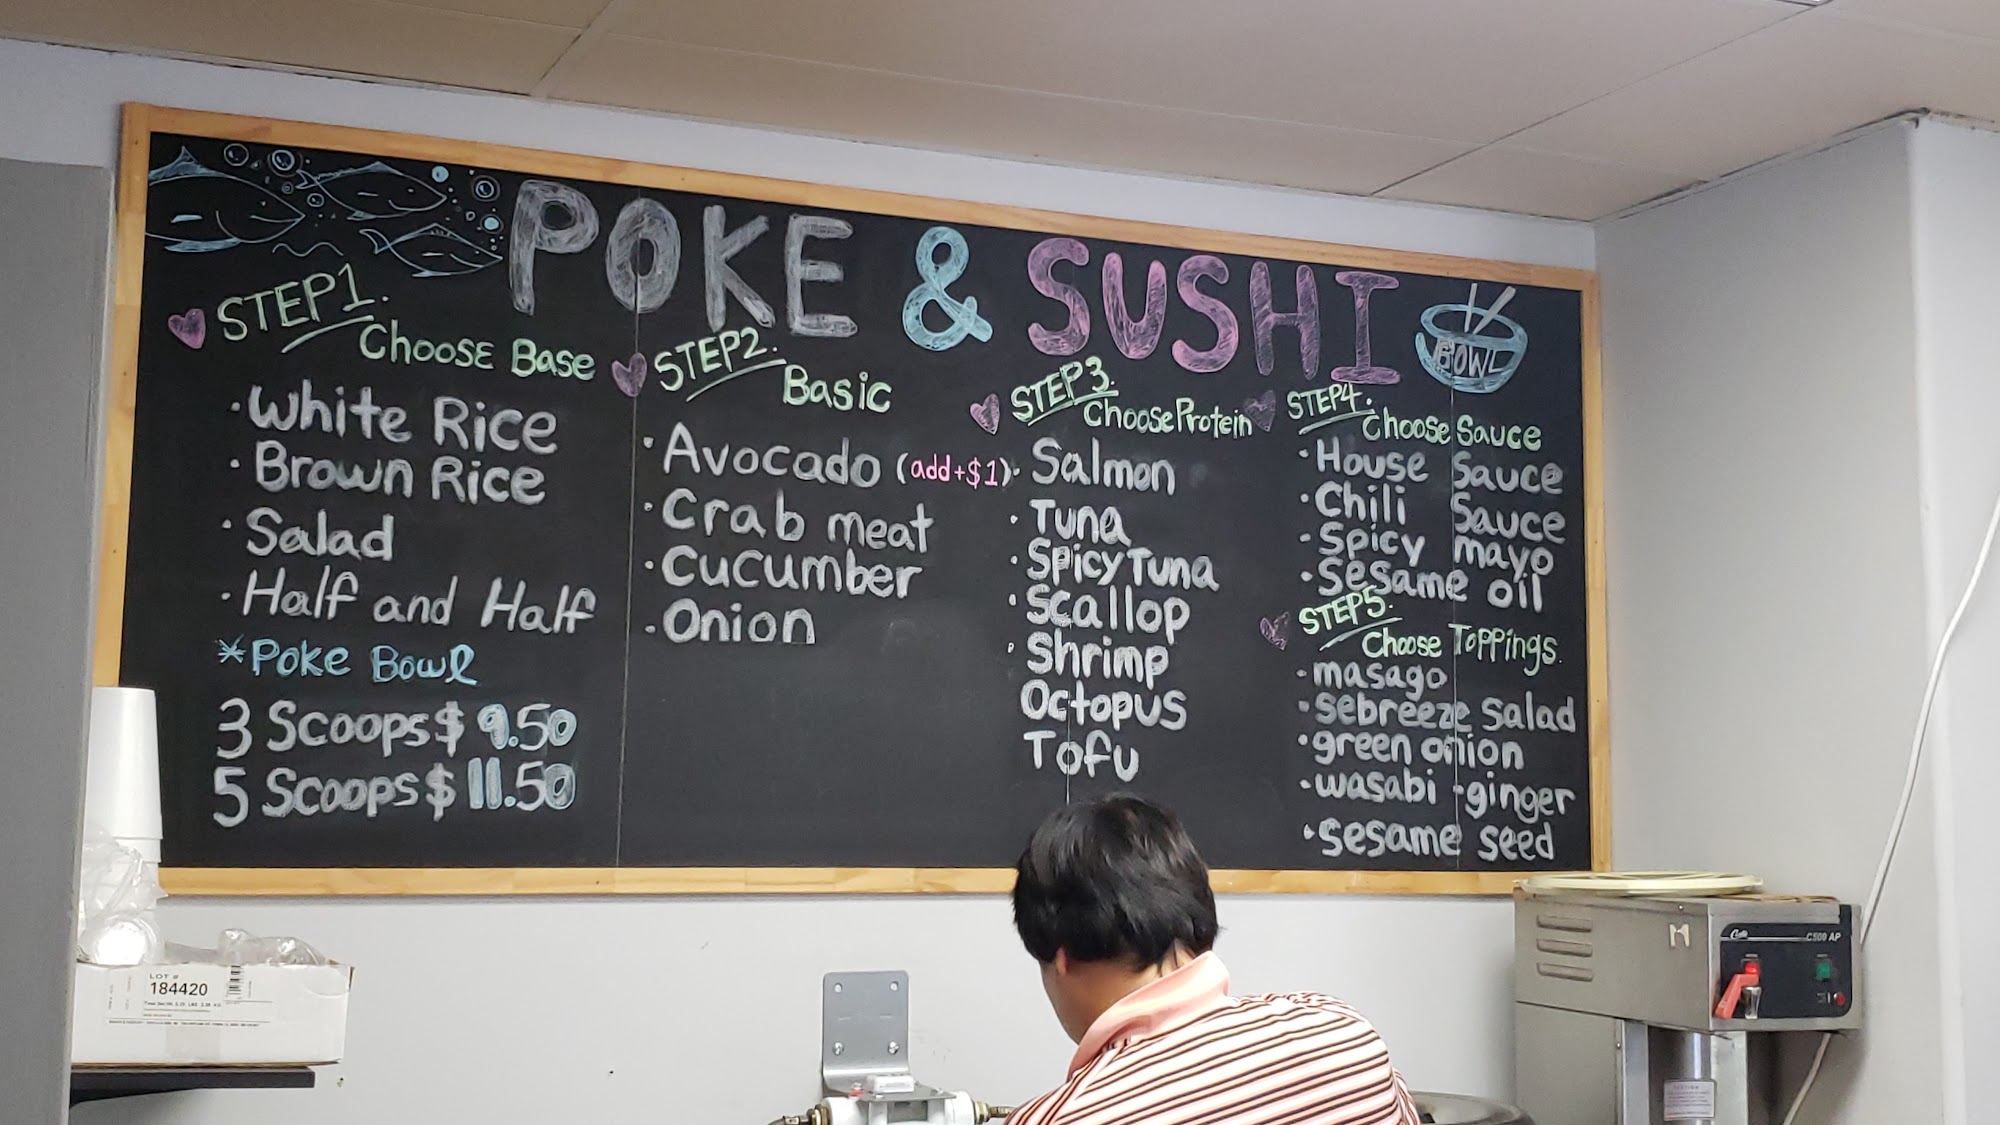 POKE & SUSHI
BOWL
STEP1.
Choose Base
·White Rice
·Brown Rice
·Salad
·Half and Half
*Poke Bowl
3 Scoops $ 9.50
5 Scoops $ 11.50
STEP2.
Basic
·Avocado (add+$1)
·Crab meat
·Cucumber
·Onion
STEP3.
Choose Protein
·Salmon
·Tuna
·Spicy Tuna
·Scallop
·Shrimp
Octopus
Tofu
STEP4.
Choose Sauce
·House Sauce
·Chili Sauce
·Spicy mayo
·Sesame oil
STEP5.
Choose Toppings.
·masago
·sebreeze salad
·green onion
·wasabi ·ginger
·sesame seed
LOT #
184420
Curtis
C500 AP